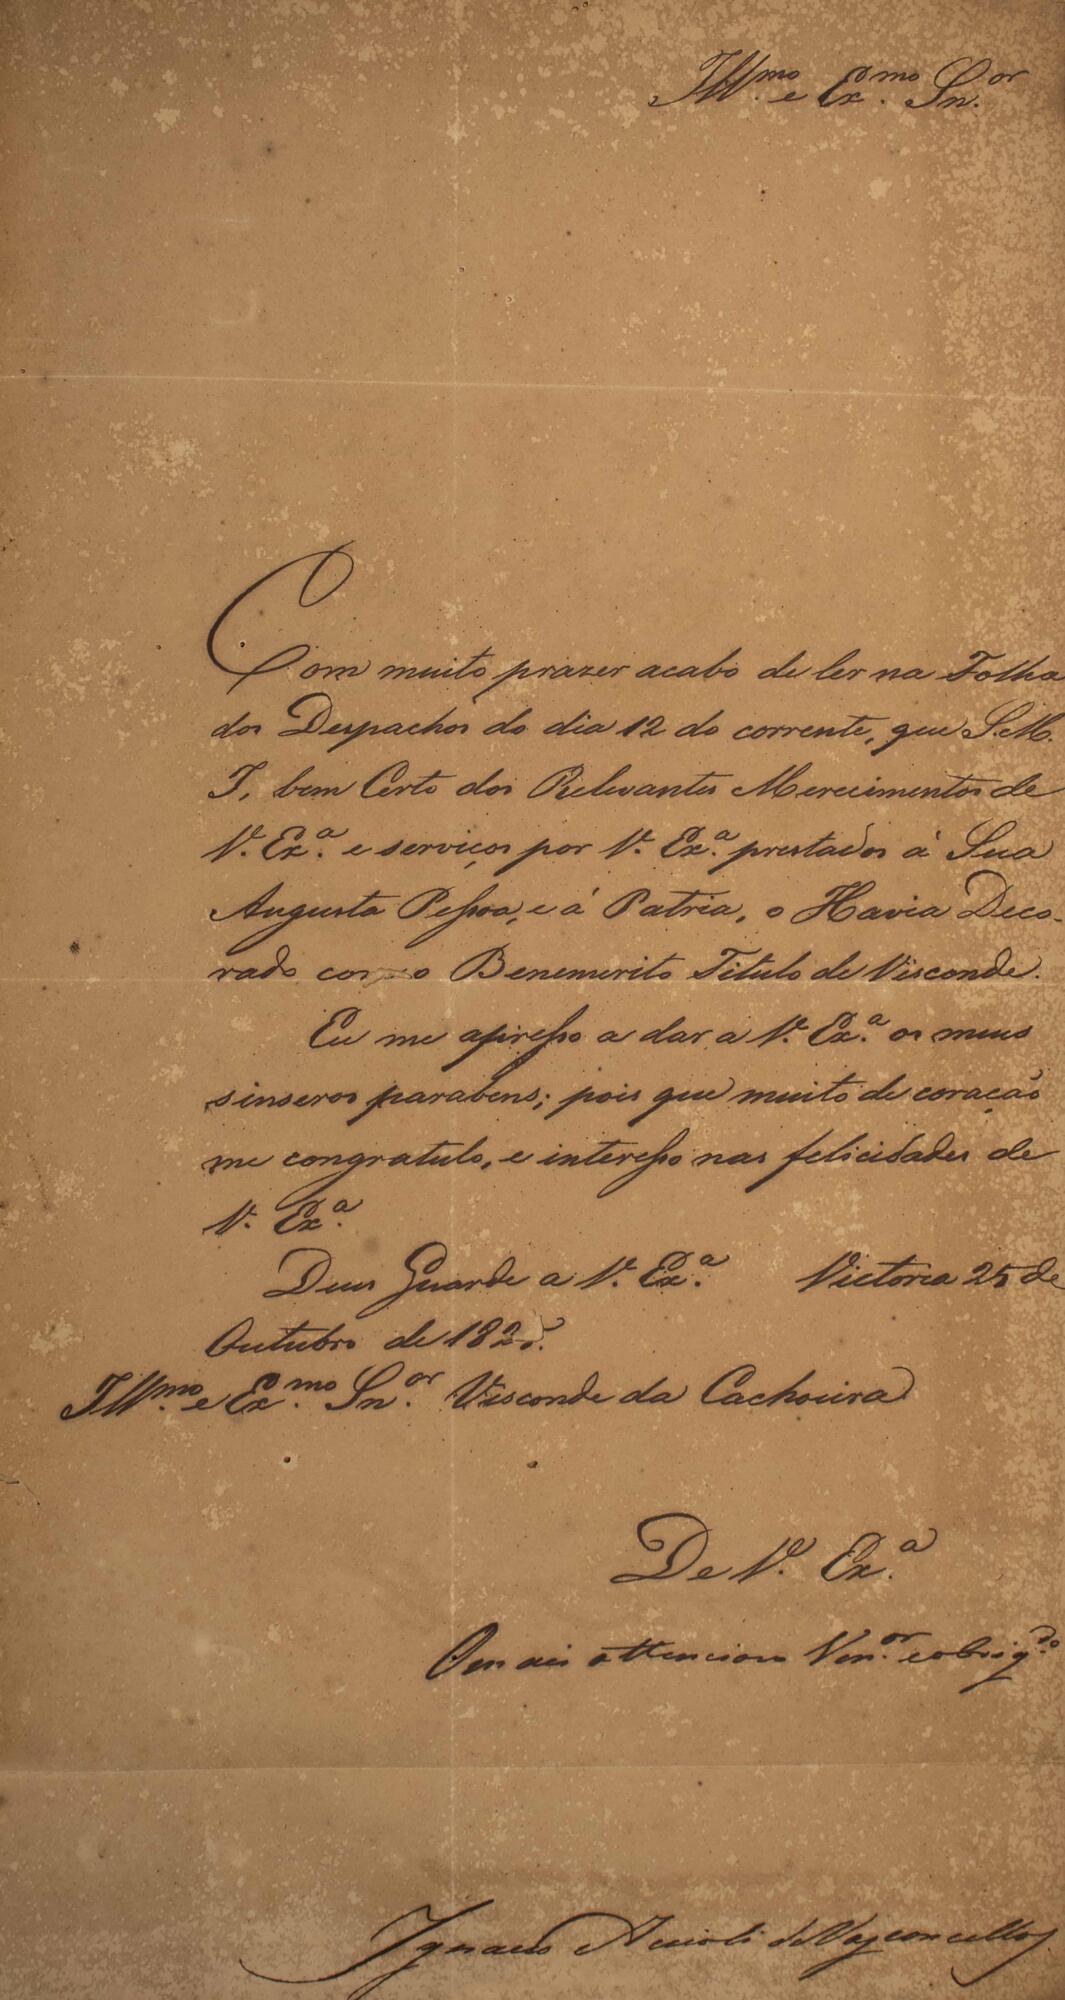 Ill.mo e Ex.mo Sn.or
Com muito prazer acabo de ler na Folha
dos Despachos do dia 12 do corrente, que S. M.
I, bem Certo dos Relevantes Merecimentos de
V. Ex.a e serviços por V. Ex.a prestados á Sua
Augusta Pessoa, e á Patria, o Havia Deco-
rado com o Benemerito Titulo de Visconde.
Eu me apresso a dar a V. Ex.a os meus
sinseros parabens; pois que muito de coração
me congratulo, e interesso nas felicidades de
V. Ex.a
Deus Guarde a V. Ex.a Victoria 25 de
Outubro de 1825.
Ill.mo e Ex.mo Sn.or Visconde da Cachoeira
De V. Ex.a
O mais attencioso Ven.or e obrig.do
Ignacio Accioli de Vasconcellos